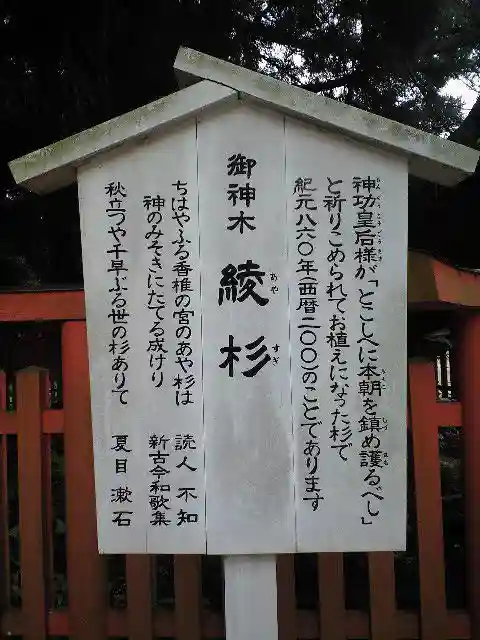 神功皇后様が「とこしへに本朝を鎮め護るべし」
と祈りこめられてお植えになった杉で
紀元八六〇年(西暦二〇〇)のことであります
御神木 綾杉
あや すぎ
ちはやふる香椎の宮のあや杉は
神のみそきにたてる成けり
読人 不知
新古今和歌集
秋立つや千早ふる世の杉ありて
夏目 漱石